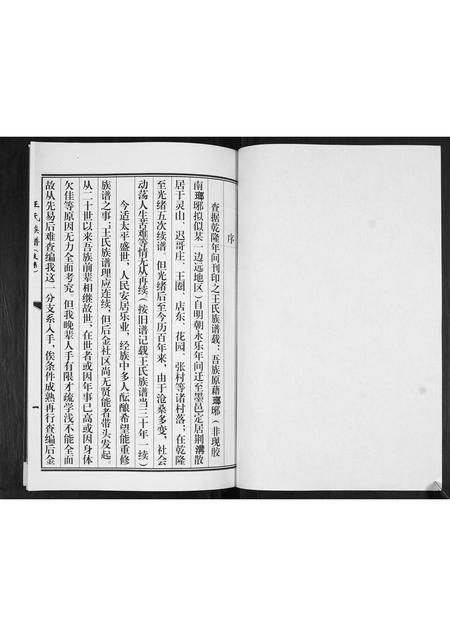 序
查据乾隆年间刊印之王氏族谱载：吾族原藉瑯琊（非现胶
南瑯琊拟似某一边远地区）自明朝永乐年间迁至墨邑定居荆沟散
居于灵山、迟哥庄、王圈、店东、花园、张村等诸村落；在乾隆
至光绪五次续谱。但光绪后至今历百年来，由于沧桑多变，社会
动荡人生苦难等情无从再续（按旧谱记载王氏族谱当三十年一续）
今适太平盛世，人民安居乐业，经族中多人酝酿希望能重修
族谱之事；王氏族谱理应连续，但后金社区尚无贤能者带头发起。
从二十世以来吾族前辈相继故世，在世者或因年事已高或因身体
欠佳等原因无力全面考究。但我晚辈人手有限才疏学浅不能全面
故从先易后难查编我这一分支系入手，俟条件成熟再行查编后金
王氏族谱
一